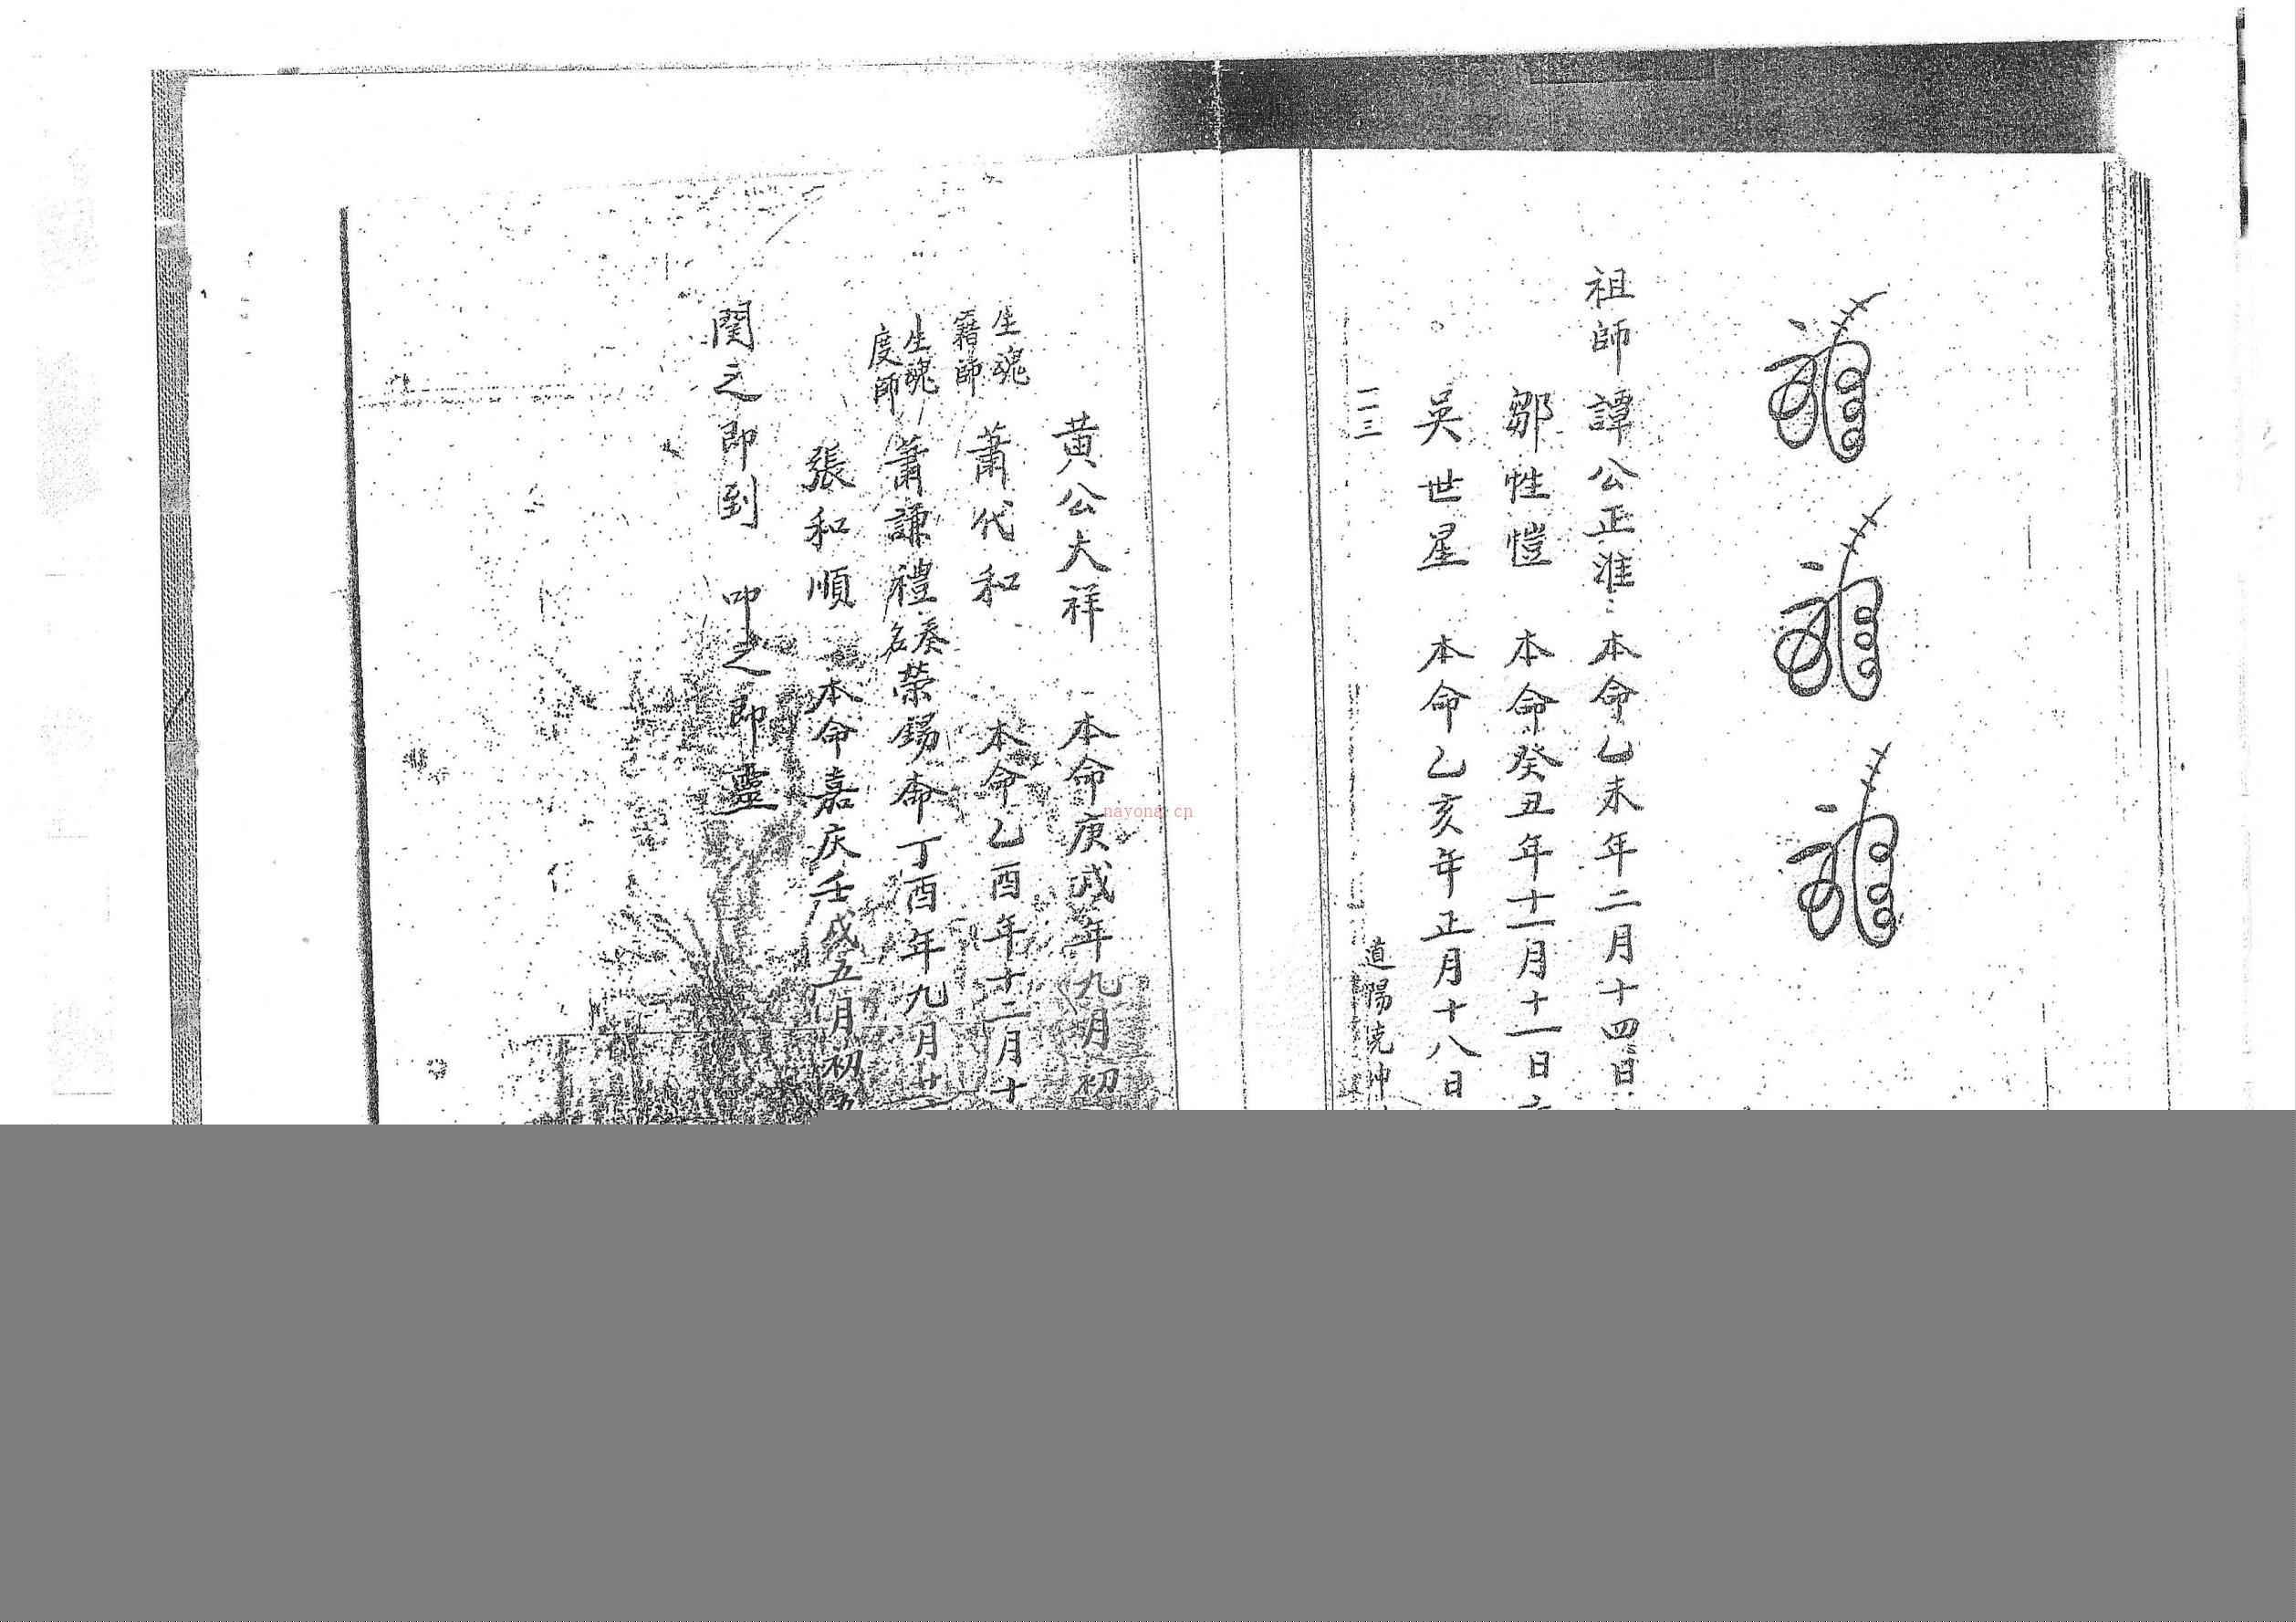 祖師譚公正淮 本命乙未年二月十四日
鄒性愷 本命癸丑年十一月十一日
吳世星 本命乙亥年正月十八日
一一三
道陽
黄公大祥 本命庚戌年九月初
生魂
籍師
蕭代和 本命乙酉年十二月十
生魂
度師
蕭謙禮
奏
名
荣錫 命丁酉年九月廿
張和順 本命嘉庆壬戌五月初
闗之即到 叩之即靈
nayona.cn